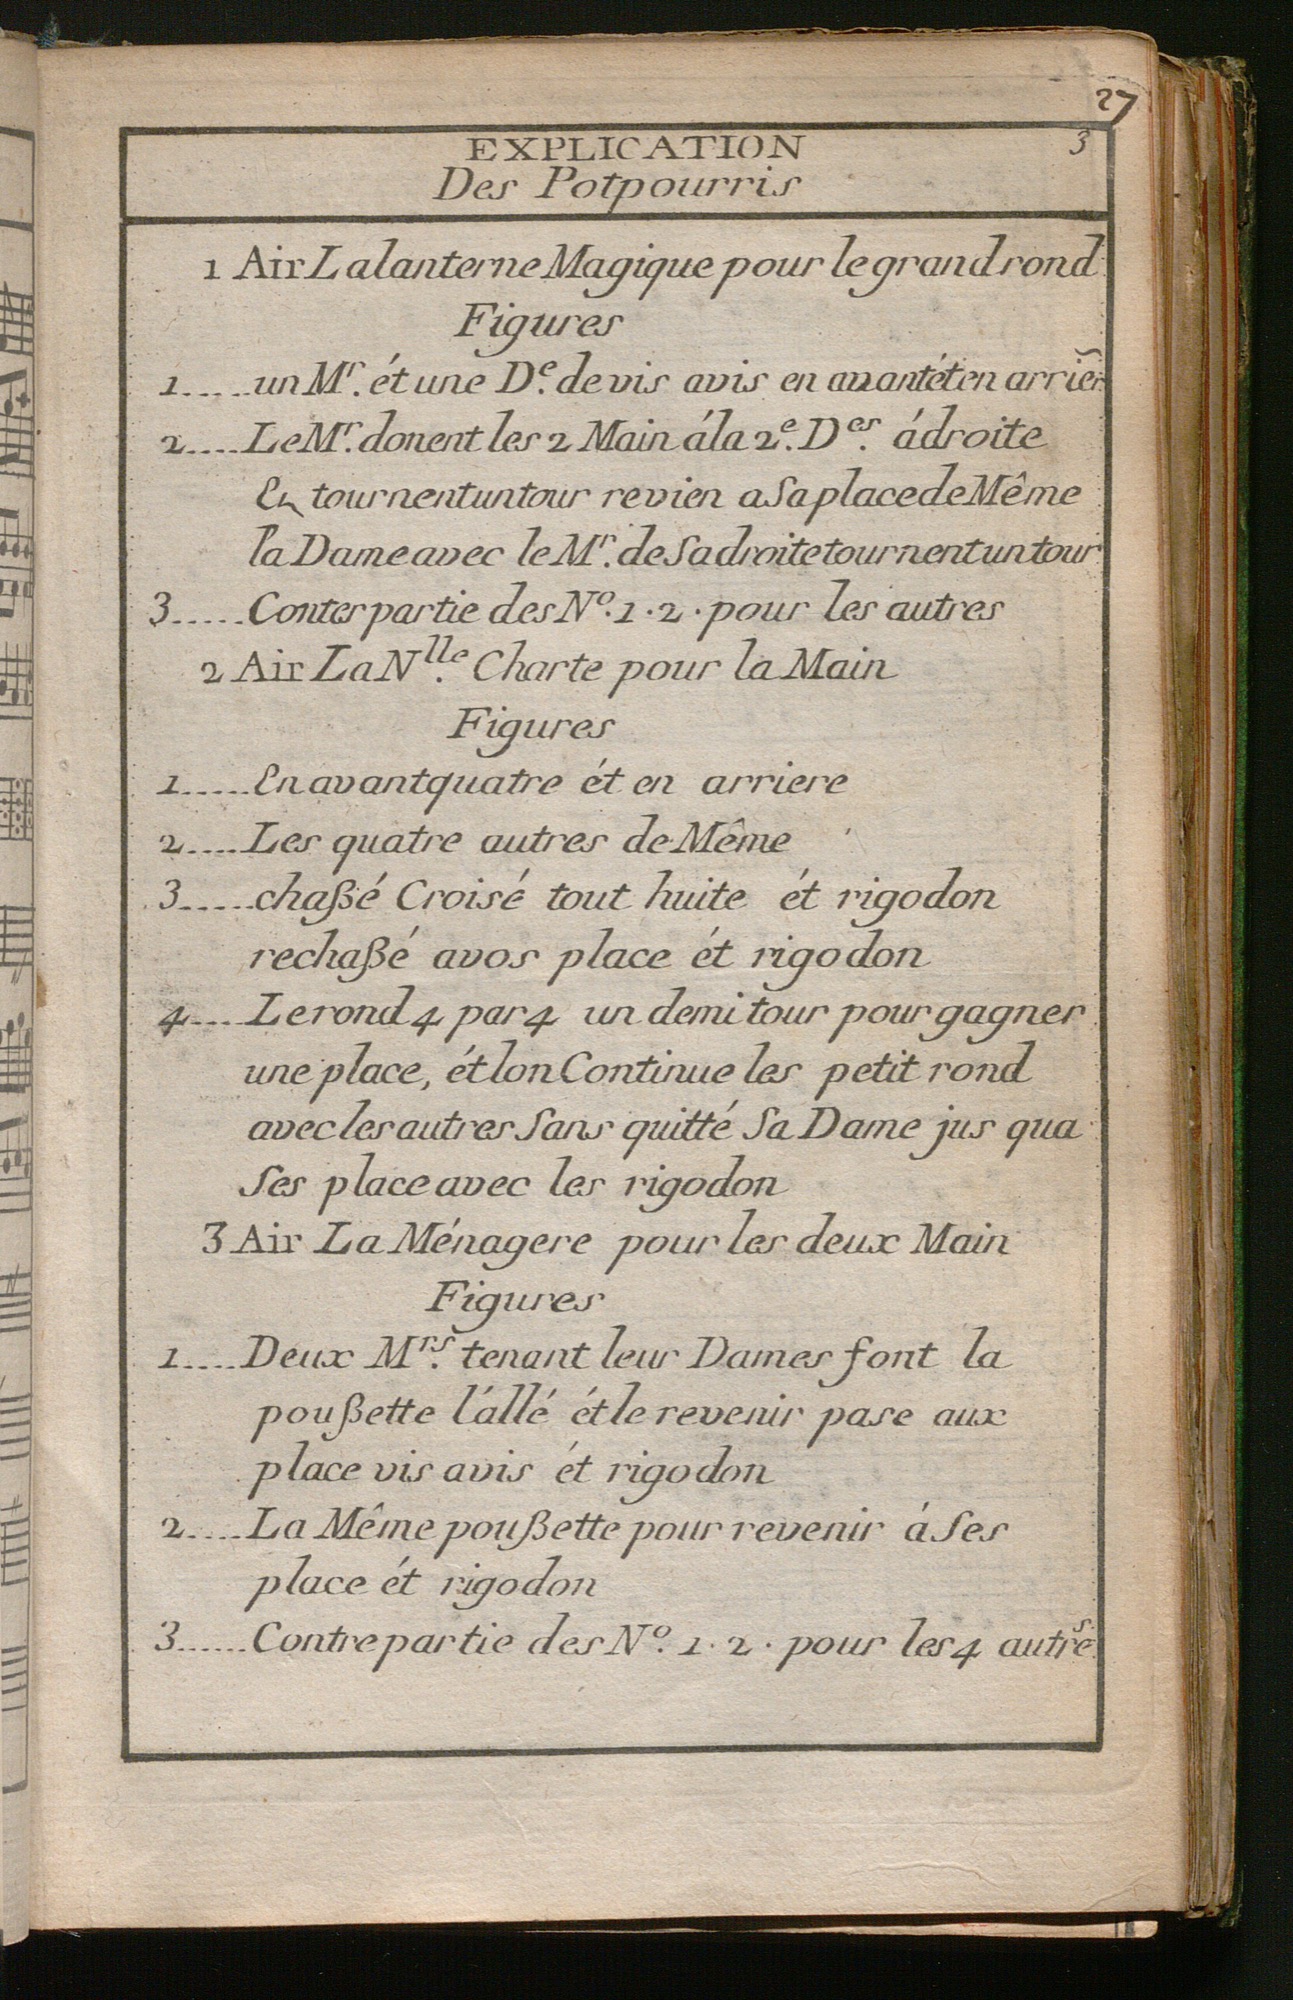 27
3
EXPLICATION
Des Potpourris
1 Air La lanterne Magique pour le grand rond
Figures
1..... un Mr. ét une De. de vis avis en avant ét en arrier
2.... Le Mr. donent les 2 Main á la 2e. Des. á droite
En tournent un tour revien a Sa place de Même
la Dame avec le Mr. de Sa droite tournent un tour
3..... Conter partie des No. 1. 2. pour les autres
2 Air La Nlle. Charte pour la Main
Figures
1..... En avant quatre ét en arriere
2.... Les quatre autres de Même
3..... chaßé Croisé tout huite ét rigodon
rechaßé avos place ét rigodon
4.... Le rond 4 par 4 un demi tour pour gagner
une place, ét lon Continue les petit rond
avec les autres Sans quitté Sa Dame jus qua
Ses place avec les rigodon
3 Air La Ménagere pour les deux Main
Figures
1.... Deux Mrs. tenant leur Dames font la
poußette l'állé ét le revenir pase aux
place vis avis ét rigodon
2.... La Même poußette pour revenir á Ses
place ét rigodon
3...... Contre partie des No. 1. 2. pour les 4 autres